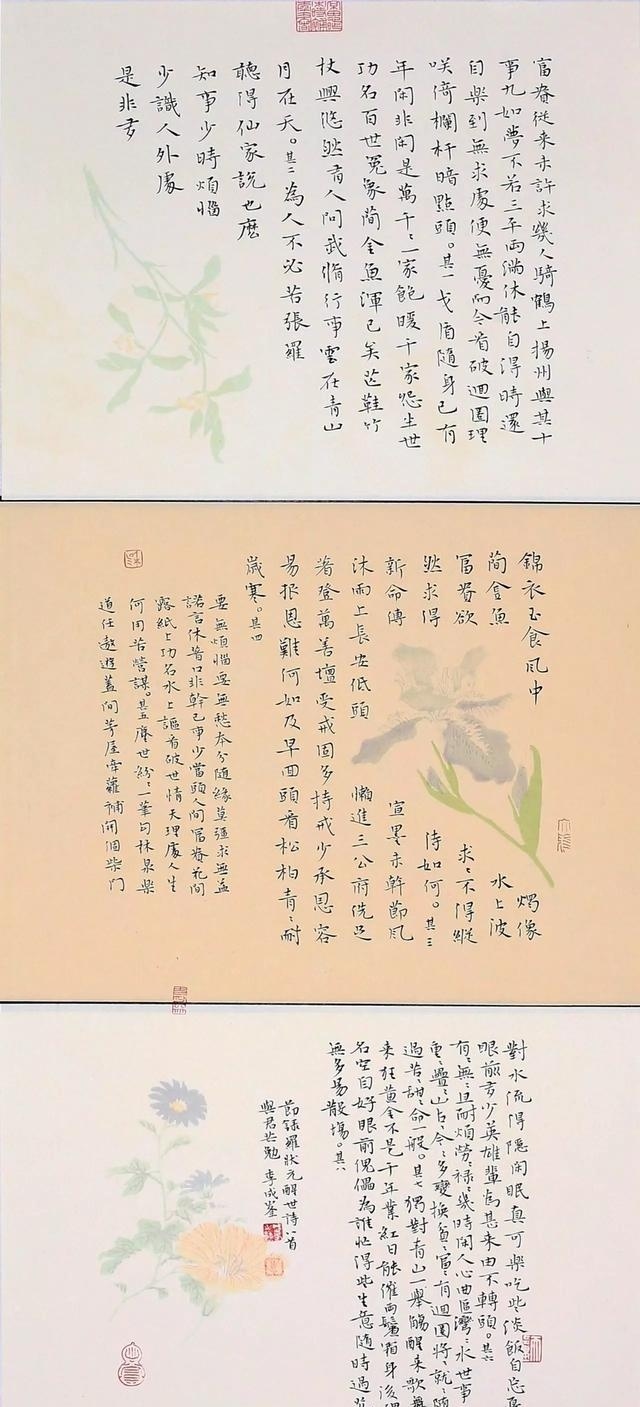 富貴從来亦許求幾人騎鶴上揚州與其十
事九如夢不若三平兩滿休能自得時還
自樂到無求處便無憂而今看破迴圈理
咲倚欄杆暗點頭。其一戈盾隨身已有
年閑非閑是萬千〻一家飽暖千家怨半世
功名百世冤象簡金魚渾已矣芒鞋竹
杖興悠然有人問我脩行事雲在青山
月在天。其二為人不必苦張羅
聽得仙家說也麼
知事少時煩惱
少識人外處
是非多
錦衣玉食風中燭像
簡金魚水上波
富貴欲求〻不得縱
然求得待如何。其三
新命傳宣墨未幹節風
沐雨上長安低頭懶進三公府洗足
羞登萬善壇受戒固多持戒少承恩容
易报恩難何如及早回頭看松柏青〻耐
歲寒。其四
要無煩惱要無愁本分隨緣莫強求無益
諾言休著口非幹己事少當頭人間富貴花間
露紙上功名水上漚看破世情天理處人生
何用苦營謀。其五塵世紛〻一筆勾林泉樂
道任遨遊蓋間茅屋牽蘿補開個柴門
對水流得隱閑眠真可樂吃些淡飯自忘
眼前多少英雄輩為甚来由不轉頭。其六
有〻無〻且耐煩勞〻祿〻幾時閑人心曲區灣〻水世事
重〻疊〻山古〻今〻多變換貧〻富〻有迴圈將〻就〻隨
過苦〻甜〻命一般。其七獨對青山一舉觴醒来歌
来狂黃金不是千年業紅日能催兩鬢霜身後
名空自好眼前傀儡為誰忙得些生意隨時過
無多易散場。其八
節錄羅狀元醒世詩八首
與君共勉 李成筌